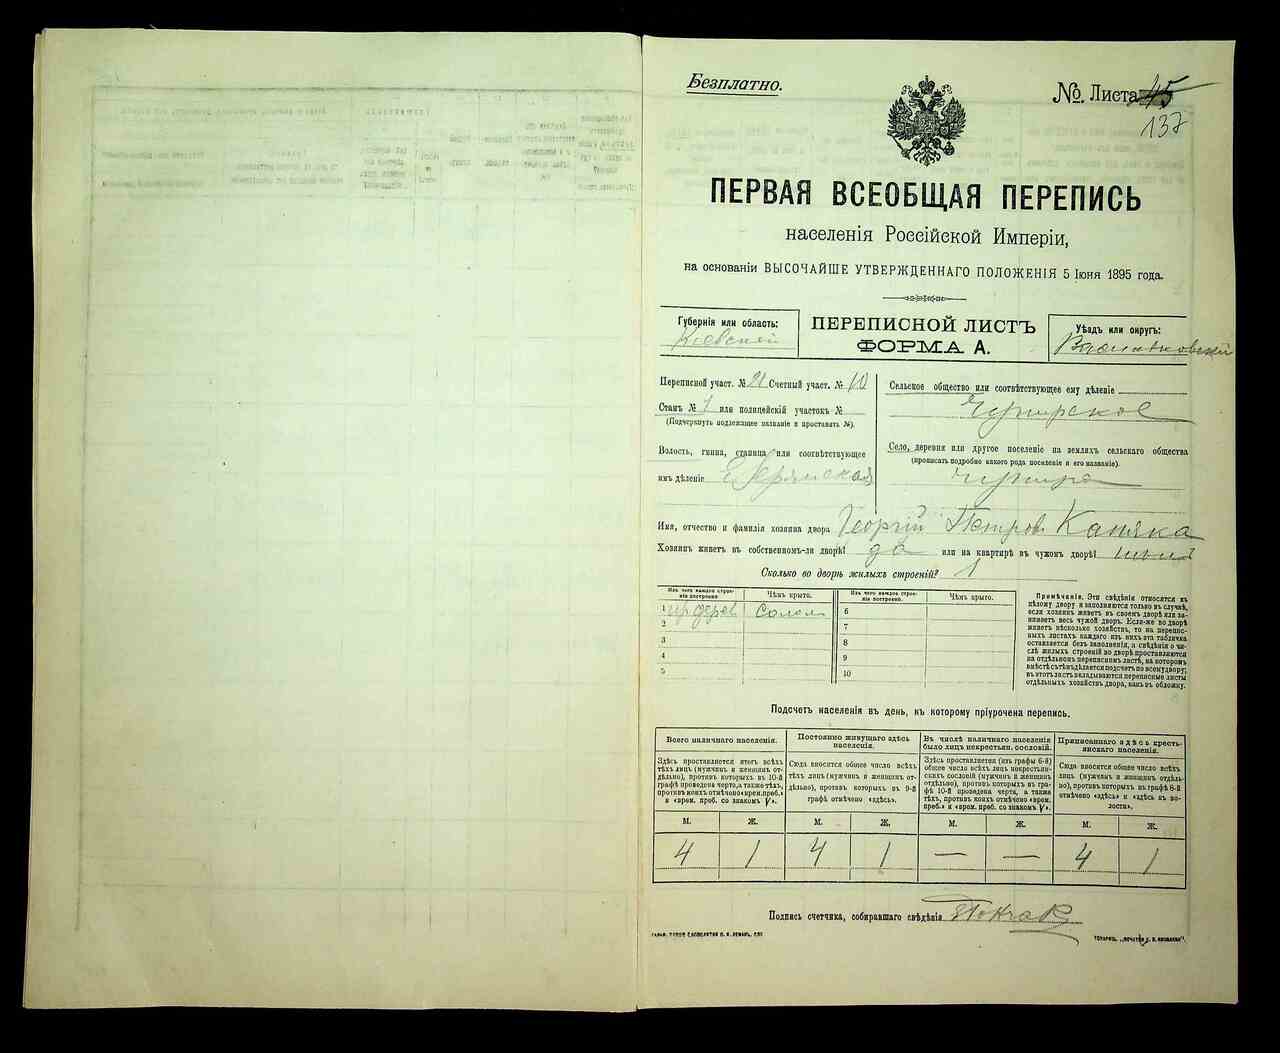 Безплатно.
№ Листа 45
137
ПЕРВАЯ ВСЕОБЩАЯ ПЕРЕПИСЬ
населенія Россійской Имперіи,
на основаніи ВЫСОЧАЙШЕ УТВЕРЖДЕННАГО ПОЛОЖЕНІЯ 5 Іюня 1895 года.
Губернія или область:
Кіевский
ПЕРЕПИСНОЙ ЛИСТЪ
ФОРМА А.
Уѣздъ или округъ:
Васильковский
Переписной участ. № 21 Счетный участ. № 10
Станъ № 1 или полицейскій участокъ №
(Подчеркнуть подлежащее названіе и проставить №).
Волость, гмина, станица или соотвѣтствующее
имъ дѣленіе
Сельское общество или соотвѣтствующее ему дѣленіе
Село, деревня или другое поселеніе на земляхъ сельскаго общества
(прописать подробно какого рода поселеніе и его названіе).
Имя, отчество и фамилія хозяина двора Георгій Петров Капяка
Хозяинъ живетъ въ собственномъ-ли дворѣ? да или на квартирѣ въ чужомъ дворѣ?
Сколько во дворѣ жилыхъ строеній? 1
Изъ чего каждое строеніе построено.
Чѣмъ крыто.
Изъ чего каждое строеніе построено.
Чѣмъ крыто.
1 дерев Солом 6
2 7
3 8
4 9
5 10
Примѣчаніе. Эти свѣдѣнія относятся къ
цѣлому двору и заполняются только въ случаѣ,
если хозяинъ живетъ въ своемъ дворѣ или занимаетъ
весь чужой дворъ. Если-же во дворѣ
живетъ нѣсколько хозяйствъ, то на переписныхъ
листахъ каждаго изъ нихъ эта табличка
оставляется безъ заполненія, а свѣдѣнія о числѣ
жилыхъ строеній во дворѣ проставляются
на отдѣльномъ переписномъ листѣ, на которомъ
вмѣстѣ съ тѣмъ дѣлается подсчетъ по всему двору;
въ этотъ листъ вкладываются переписные листы
отдѣльныхъ хозяйствъ двора, какъ въ обложку.
Подсчетъ населенія въ день, къ которому пріурочена перепись.
Всего наличнаго населенія.
Здѣсь проставляется итогъ всѣхъ
тѣхъ лицъ (мужчинъ и женщинъ отдѣльно),
противъ которыхъ въ 10-й
графѣ проведена черта, а также тѣхъ,
противъ коихъ отмѣчено «врем. преб.»
и «врем. преб. со знакомъ V».
Постоянно живущаго здѣсь
населенія.
Сюда вносится общее число всѣхъ
тѣхъ лицъ (мужчинъ и женщинъ отдѣльно),
противъ которыхъ въ 9-й
графѣ отмѣчено «здѣсь».
Въ числѣ наличнаго населенія
было лицъ некрестьян. сословій.
Здѣсь проставляется (изъ графы 6-й)
общее число всѣхъ лицъ некрестьянскихъ
сословій (мужчинъ и женщинъ
отдѣльно), противъ которыхъ въ графѣ
10-й проведена черта, а также
тѣхъ, противъ коихъ отмѣчено «врем.
преб.» и «врем. преб. со знакомъ V».
Приписаннаго здѣсь крестьянскаго
населенія.
Сюда вносится общее число всѣхъ
лицъ (мужчин и женщинъ отдѣльно),
противъ которыхъ въ графѣ 8-й
отмѣчено «здѣсь» и «здѣсь въ волости».
М. Ж. М. Ж. М. Ж. М. Ж.
4 1 4 1 — — 4 1
Подпись счетчика, собиравшаго свѣдѣнія